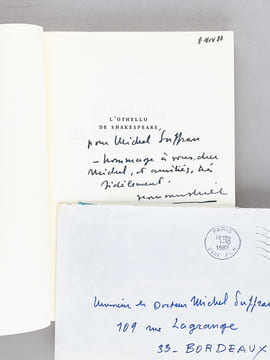 8 Nov 80
L'OTHELLO
DE SHAKESPEARE,
pour Michel Suffran
– hommage à vous, cher
Michel, et amitiés, très
fidèlement.
PARIS
1980
Monsieur le Docteur Michel Suffran
109 rue Lagrange
33 - BORDEAUX